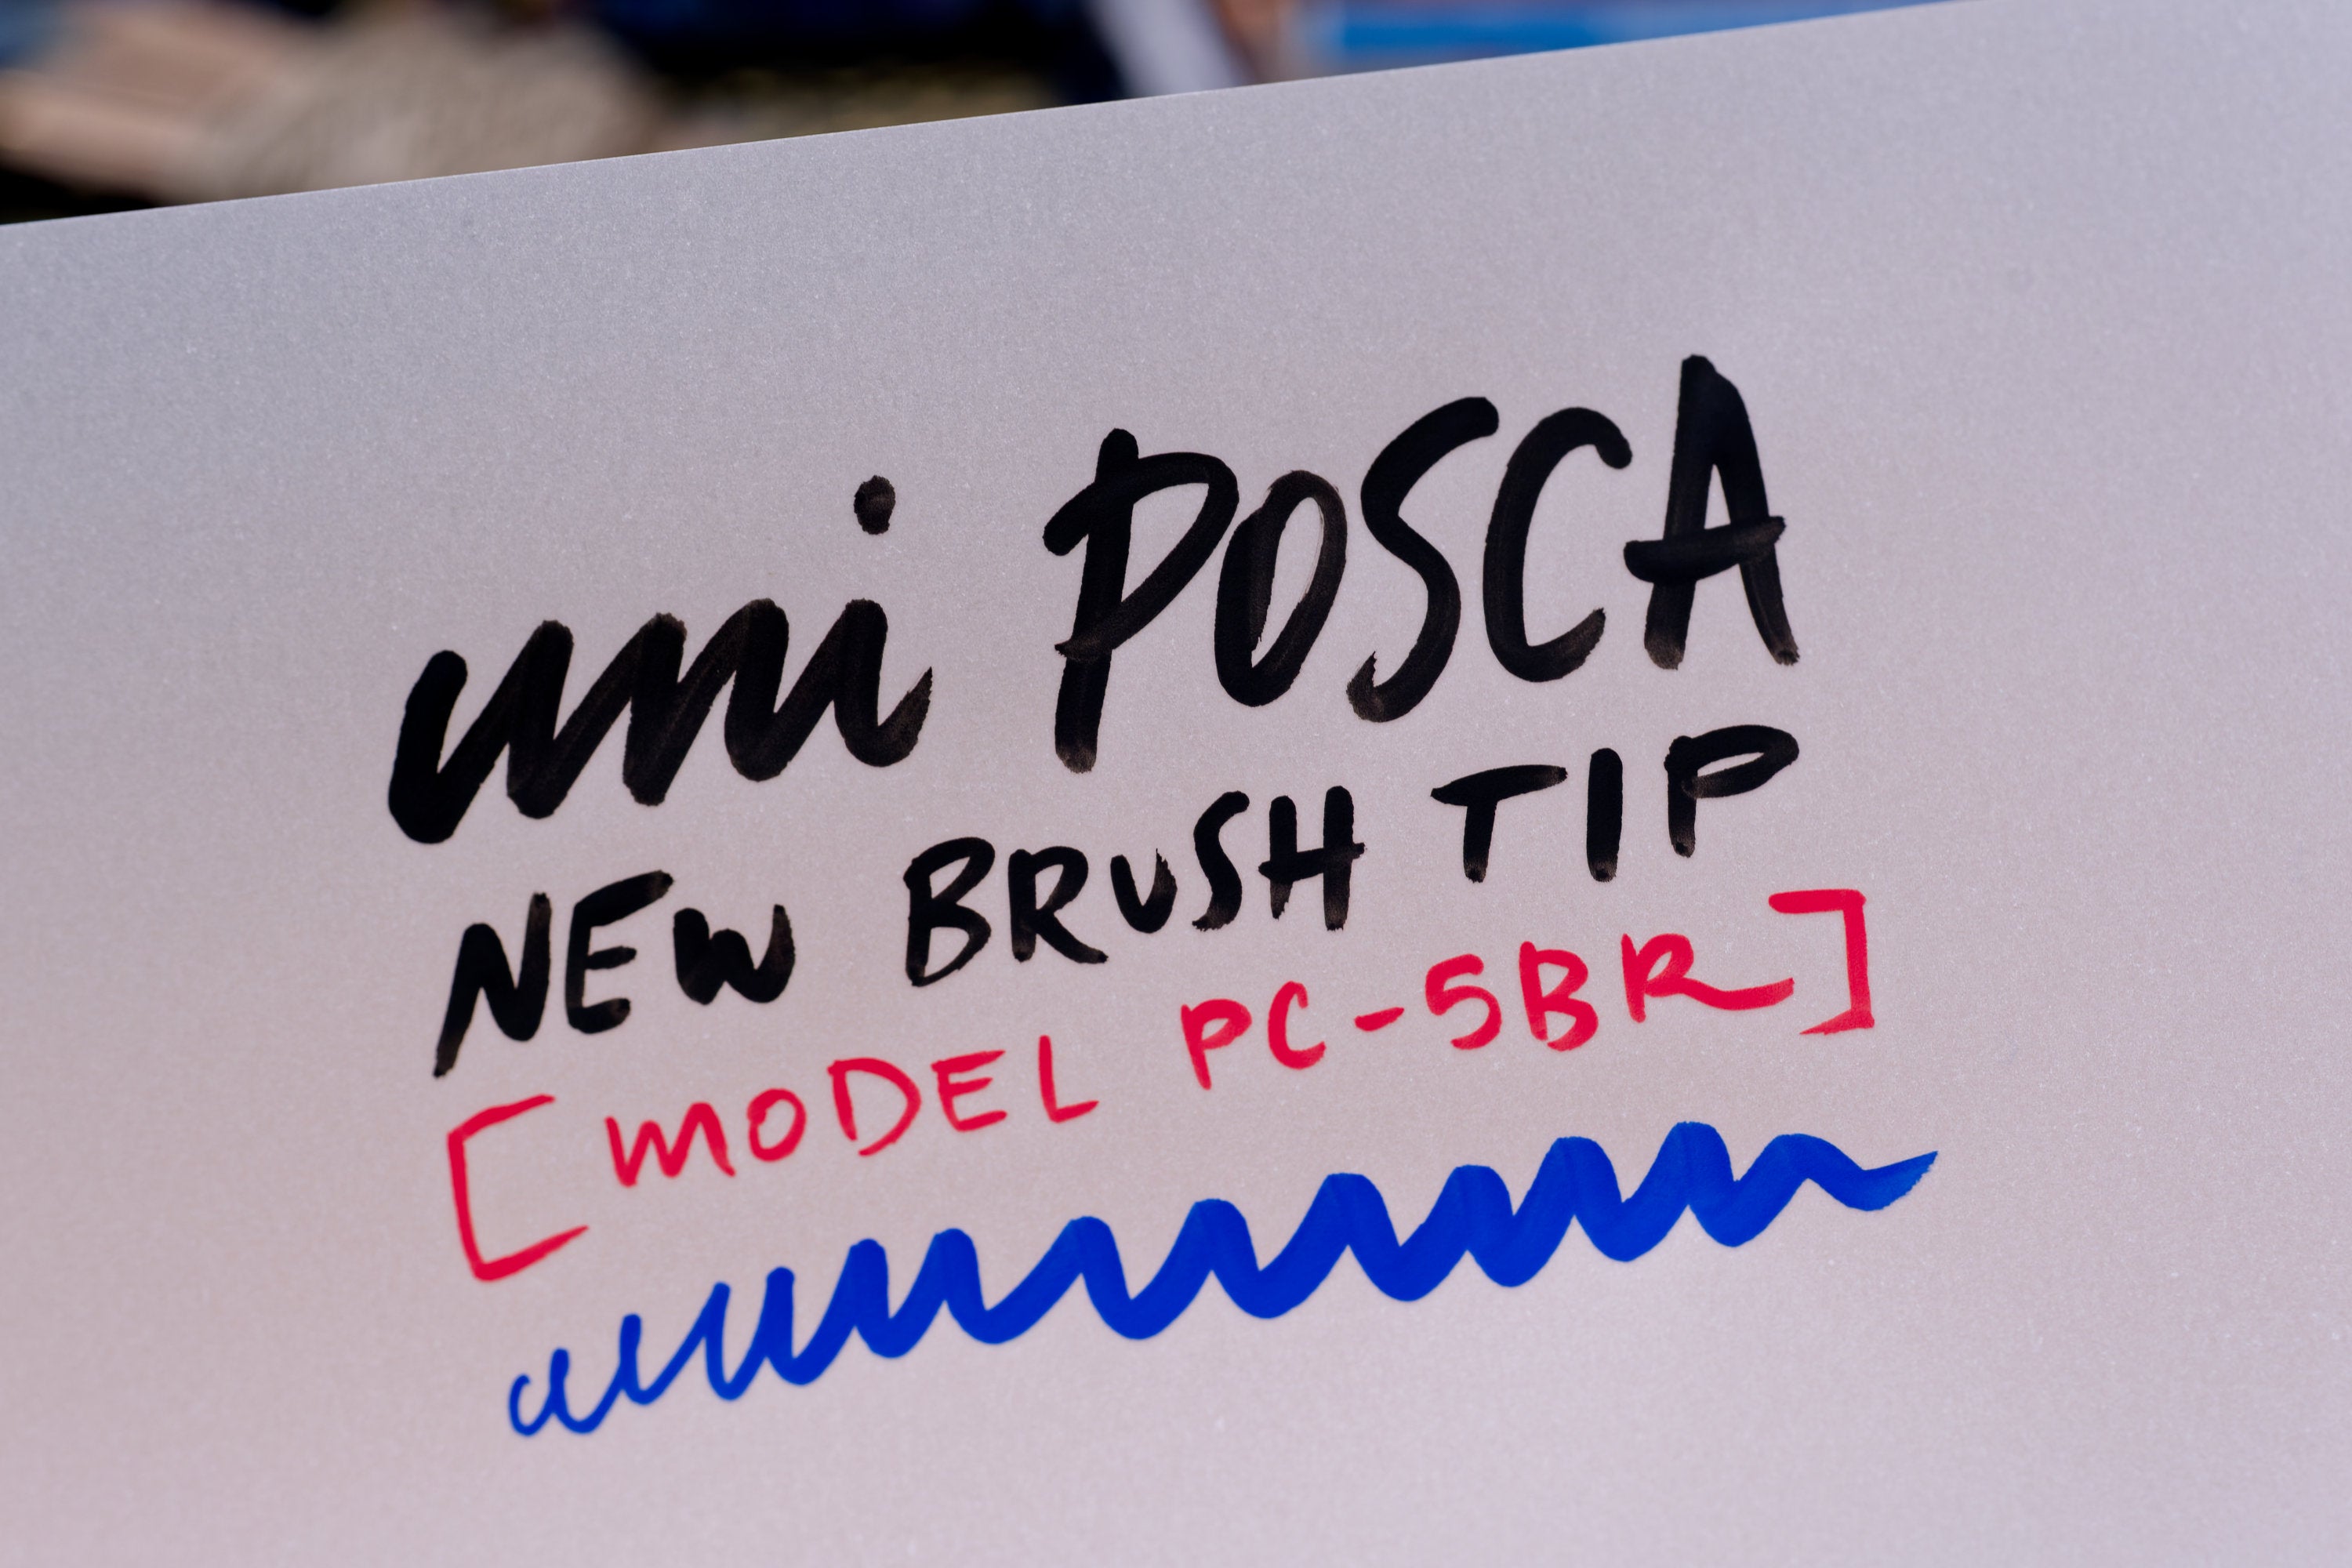 uni POSCA
NEW BRUSH TIP
[MODEL PC-5BR]